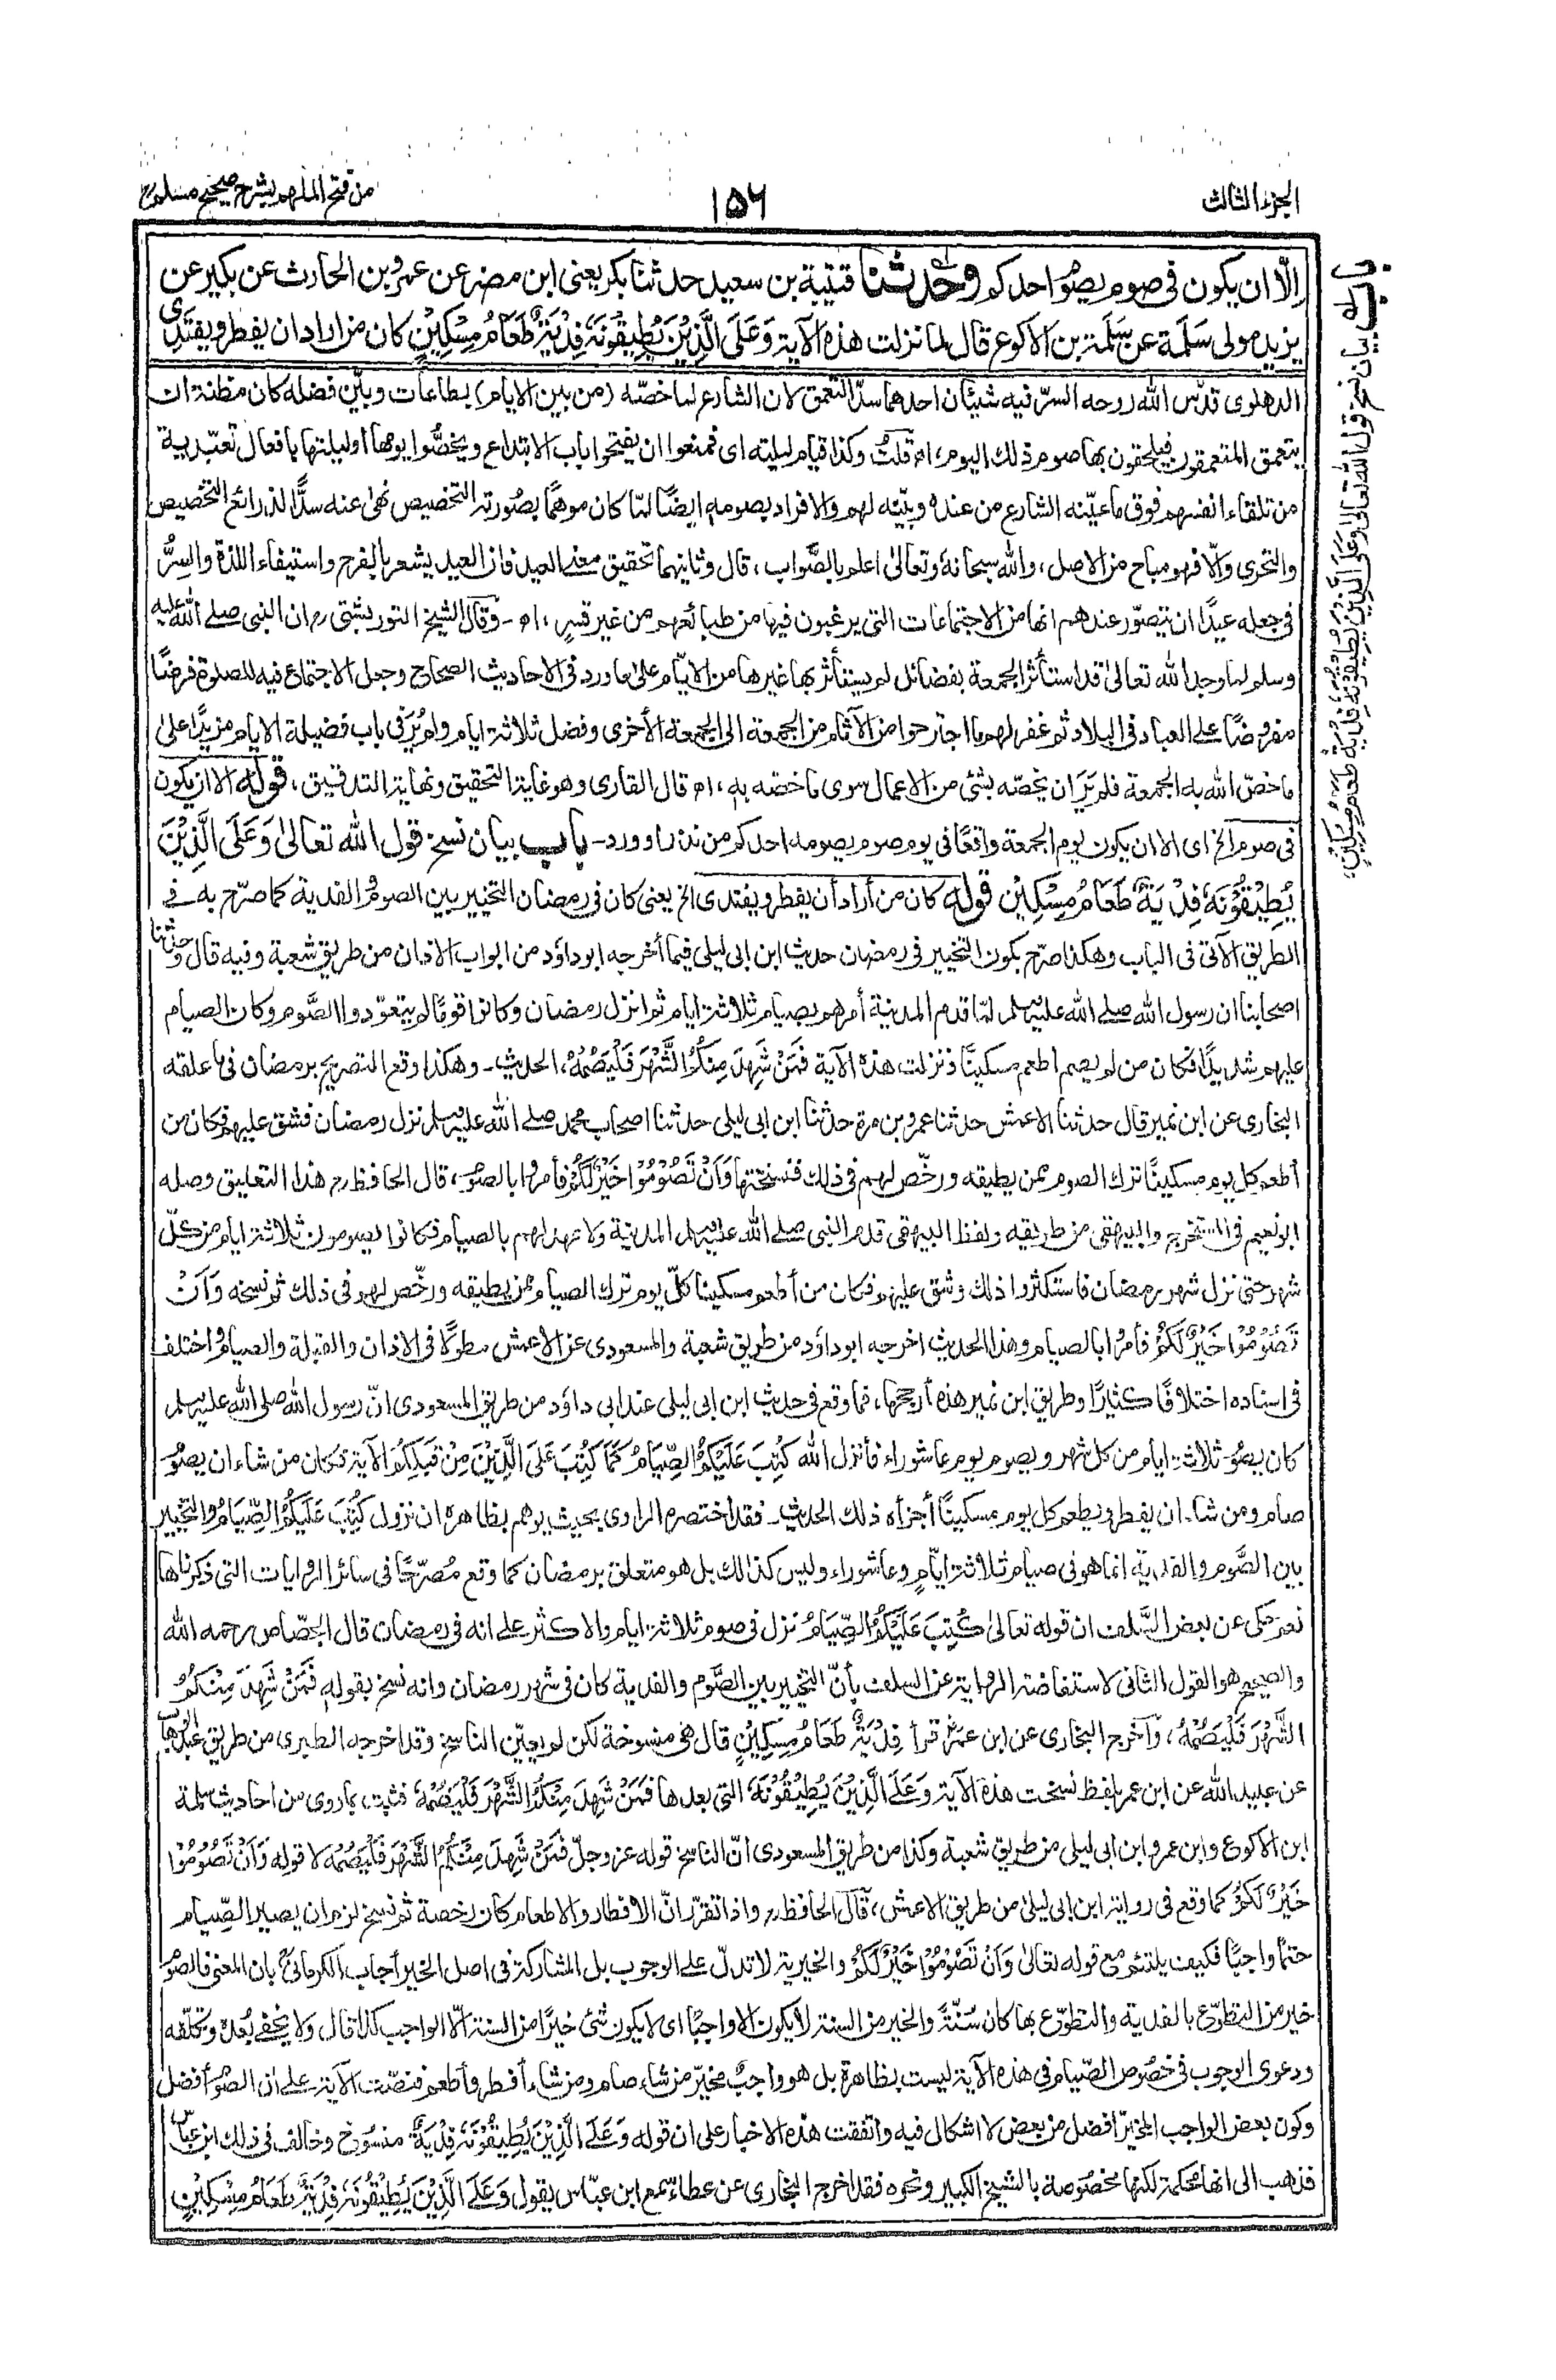 الجزء الثالث
١٥٦
من فتح الملهم بشرح صحيح مسلم
باب بيان نسخ قول الله تعالى وعلى الذين يطيقونه فدية طعام مسكين،
إلّا ان يكون في صوم يصوم احدكم وحدثنا قتيبة بن سعيد حدثنا بكر يعنى ابن مضر عن عمرو بن الحارث عن بكير عن
يزيد مولى سَلَمة عن سَلَمة بن الاكوع قال لما نزلت هذه الآية وَعَلَى الَّذِيْنَ يُطِيْقُوْنَهٗ فِدْيَةٌ طَعَامُ مِسْكِيْنٍ كان من اراد ان يفطر ويفتدى
الدهلوى قدّس الله روحه السرّ فيه شيئان احدهما سدّ التعمق لان الشارع لما خصّه (من بين الايام) بطاعات وبيّن فضله كان مظنة ان
يتعمق المتعمقون فيلحقون بها صوم ذلك اليوم، اه قلتُ وكذا قيام ليلته اى فمنعوا ان يفتحوا باب الابتداع ويخصُّوا يومها اوليلتها بافعال تعبّدية
من تلقاء انفسهم فوق ما عيّنه الشارع من عنده وبيّنه لهم والافراد بصومه ايضًا لمّا كان موهمًا بصُورته التخصيص نهى عنه سدًّا لذرائع التخصيص
والتحرى والّا فهو مباح من الاصل، والله سبحانهٗ وتعالىٰ اعلم بالصَّواب، قال وثانيهما تحقيق معنى العيد فان العيد يشعر بالفرح واستيفاء اللذة والسِرُّ
فى جعله عيدًا ان يتصوّر عندهم انها من الاجتماعات التى يرغبون فيها من طبائعهم من غير قسرٍ، اه - وقال الشيخ التوربشتى رح ان النبى صلے الله عليه
وسلم لما وجد الله تعالىٰ قد استأثر الجمعة بفضائل لم يستأثر بها غيرها من الايّام علىٰ ما ورد فى الاحاديث الصحاح وجعل الاجتماع فيه للصلوة فرضًا
مفروضًا على العباد فى البلاد ثم غفر لهم ما اجترحوا من الآثام من الجمعة الى الجمعة الأخرى وفضل ثلاثة ايام ولم يُرَ فى باب فضيلة الايام مزيدًا علىٰ
ما خصّ الله به الجمعة فلم يَرَ ان يخصّه بشئ من الاعمال سوى ما خصّه به، اه قال القارى وهو غاية التحقيق ونهاية التدقيق، قوله الا ان يكون
فى صوم الخ اى الا ان يكون يوم الجمعة واقعًا فى يوم صوم يصومه احدكم من نذر او ورد- باب بيان نسخ قول الله تعالىٰ وَعَلَى الَّذِيْنَ
يُطِيْقُوْنَهٗ فِدْيَةٌ طَعَامُ مِسْكِيْن قوله كان من أراد أن يفطر ويفتدى الخ يعنى كان فى رمضان التخيير بين الصوم والفدية كما صرّح به فى
الطريق الآتى فى الباب وهكذا صرّح بكون التخيير فى رمضان حديث ابن ابى ليلى فيما أخرجه ابو داؤد من ابواب الاذان من طريق شعبة وفيه قال وحدثنا
اصحابنا ان رسول الله صلے الله عليه وسلم لمّا قدم المدينة أمرهم بصيام ثلاثة ايام ثم انزل رمضان وكانوا قومًا لم يتعوّدوا الصَّوم وكان الصيام
عليهم شديدًا فكان من لم يصم اطعم مسكينًا فنزلت هذه الآية فَمَنْ شَهِدَ مِنْكُمُ الشَّهْرَ فَلْيَصُمْهُ، الحديث - وهكذا وقع التصريح برمضان فى ما علقه
البخارى عن ابن نمير قال حدثنا الاعمش حدثنا عمرو بن مرة حدثنا ابن ابى ليلى حدثنا اصحاب محمد صلے الله عليه وسلم نزل رمضان فشق عليهم فكان من
أطعم كل يوم مسكينًا ترك الصوم ممن يطيقه ورخّص لهم فى ذلك فنسختها وَاَنْ تَصُوْمُوْا خَيْرٌ لَكُمْ فأمروا بالصوم، قال الحافظ رح هذا التعليق وصله
ابو نعيم فى المستخرج والبيهقى من طريقه ولفظ البيهقى قدم النبى صلے الله عليه وسلم المدينة ولا عهد لهم بالصيام فكانوا يصومون ثلاثة ايام من كلّ
شهر حتى نزل شهر رمضان فاستكثروا ذلك وشق عليهم فكان من أطعم مسكينا كلّ يوم ترك الصيام ممن يطيقه ورخّص لهم فى ذلك ثم نسخه وَاَنْ
تَصُوْمُوْا خَيْرٌ لَكُمْ فأمروا بالصيام وهذا الحديث اخرجه ابو داؤد من طريق شعبة والمسعودى عن الاعمش مطولًا فى الاذان والقبلة والصيام واختلف
فى اسناده اختلافًا كثيرًا وطريق ابن نمير هذه أرجحها، فما وقع فى حديث ابن ابى ليلى عند ابى داؤد من طريق المسعودى انّ رسول الله صلى الله عليه وسلم
كان يصوم ثلاثة ايام من كل شهر ويصوم يوم عاشوراء فأنزل الله كُتِبَ عَلَيْكُمُ الصِّيَامُ كَمَا كُتِبَ عَلَى الَّذِيْنَ مِنْ قَبْلِكُمْ الآية فكان من شاء ان يصوم
صام ومن شاء ان يفطر ويطعم كل يوم مسكينًا أجزأه ذلك الحديث- فقد اختصره الراوى بحيث يوهم بظاهره ان نزول كُتِبَ عَلَيْكُمُ الصِّيَامُ والتخيير
بين الصَّوم والفدية انما هو فى صيام ثلاثة ايّامٍ وعاشوراء وليس كذالك بل هو متعلق برمضان كما وقع مُصرّحًا فى سائر الروايات التى ذكرناها
نعم حكى عن بعض السَّلف ان قوله تعالىٰ كُتِبَ عَلَيْكُمُ الصِّيَامُ نزل فى صوم ثلاثة ايام والاكثر على انه فى رمضان قال الجصّاص رحمه الله
والصحيح هو القول الثانى لاستفاضة الرواية عن السلف بأنّ التخيير بين الصَّوم والفدية كان فى شهر رمضان وانه نسخ بقوله فَمَنْ شَهِدَ مِنْكُمُ
الشَّهْرَ فَلْيَصُمْهُ، وأخرج البخارى عن ابن عمر قرأ فِدْيَةٌ طَعَامُ مِسْكِيْنٍ قال هى منسوخة لكن لم يعيّن الناسخ وقد اخرجه الطبرى من طريق عبد الوهاب
عن عبيد الله عن ابن عمر بلفظ نسخت هذه الآية وَعَلَى الَّذِيْنَ يُطِيْقُوْنَهٗ التى بعدها فَمَنْ شَهِدَ مِنْكُمُ الشَّهْرَ فَلْيَصُمْهُ فثبت بما روى من احاديث سلمة
ابن الاكوع وابن عمر وابن ابى ليلى من طريق شعبة وكذا من طريق المسعودى انّ الناسخ قوله عزوجلّ فَمَنْ شَهِدَ مِنْكُمُ الشَّهْرَ فَلْيَصُمْهُ لا قوله وَاَنْ تَصُوْمُوْا
خَيْرٌ لَكُمْ كما وقع فى رواية ابن ابى ليلىٰ من طريق الاعمش، قال الحافظ رح واذا تقرّر انّ الافطار والاطعام كان رخصة ثم نسخ لزم ان يصير الصِّيام
حتمًا واجبًا فكيف يلتئم مع قوله تعالىٰ وَاَنْ تَصُوْمُوْا خَيْرٌ لَكُمْ والخيرية لا تدلّ على الوجوب بل المشاركة فى اصل الخير أجاب الكرمانىؒ بان المعنى فالصوم
خير من التطوّع بالفدية والتطوّع بها كان سُنّةً والخير من السنة لا يكون الا واجبًا اى لا يكون شئ خيرًا من السنة الّا الواجب كذا قال ولا يخفى بُعده وتكلّفه
ودعوى الوجوب فى خصُوص الصِّيام فى هذه الآية ليست بظاهرة بل هو واجبٌ مخيّر من شاء صام ومن شاء أفطر وأطعم فنصّت الآية على ان الصوم أفضل
وكون بعض الواجب المخيّر افضل من بعض لا اشكال فيه واتفقت هذه الاخبار على ان قوله وَعَلَى الَّذِيْنَ يُطِيْقُوْنَهٗ فِدْيَةٌ منسوخ وخالف فى ذلك ابن عبّاس
فذهب الى انها محكمة لكنها مخصُوصة بالشيخ الكبير ونحوه فقد اخرج البخارى عن عطاء سمع ابن عبّاس يقول وَعَلَى الَّذِيْنَ يُطِيْقُوْنَهٗ فِدْيَةٌ طَعَامُ مِسْكِيْنٍ